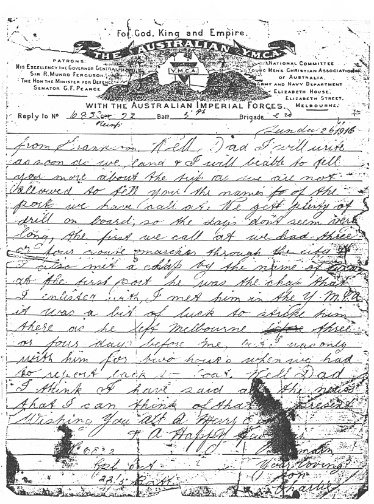 For God, King and Empire.
THE AUSTRALIAN YMCA
PATRONS
HIS EXCELLENCY THE GOVERNOR GENERAL
SIR R. MUNRO FERGUSON
THE HON THE MINISTER FOR DEFENCE
SENATOR G.F. PEARCE
YMCA
NATIONAL COMMITTEE
YOUNG MENS CHRISTIAN ASSOCIATION
OF AUSTRALIA,
ARMY AND NAVY DEPARTMENT
ELIZABETH HOUSE,
ELIZABETH STREET,
MELBOURNE.
WITH THE AUSTRALIAN IMPERIAL FORCES.
Reply to No 22 Batt 5th Brigade 2nd
1916
from Well Dad I will write
as soon as we land & I will be able to tell
you more about the trip as we are not
allowed to tell you the names of the
port we have call at. We get plenty of
drill on board, so the days don't seem
long, the first we call at we had three
or four route marches through the city
I also met a chap by the name of
at the first port he was the chap that
I enlisted with, I met him in the Y.M.C.A
it was a bit of luck to strike him
there as he left Melbourne three
or four days before me, I was only
with him for two hours when we had
to report back to boat. Well Dad
I think I have said all the news
that I can think of that present
Wishing You All A Merry
& A Happy
Your loving
Son
Charlie